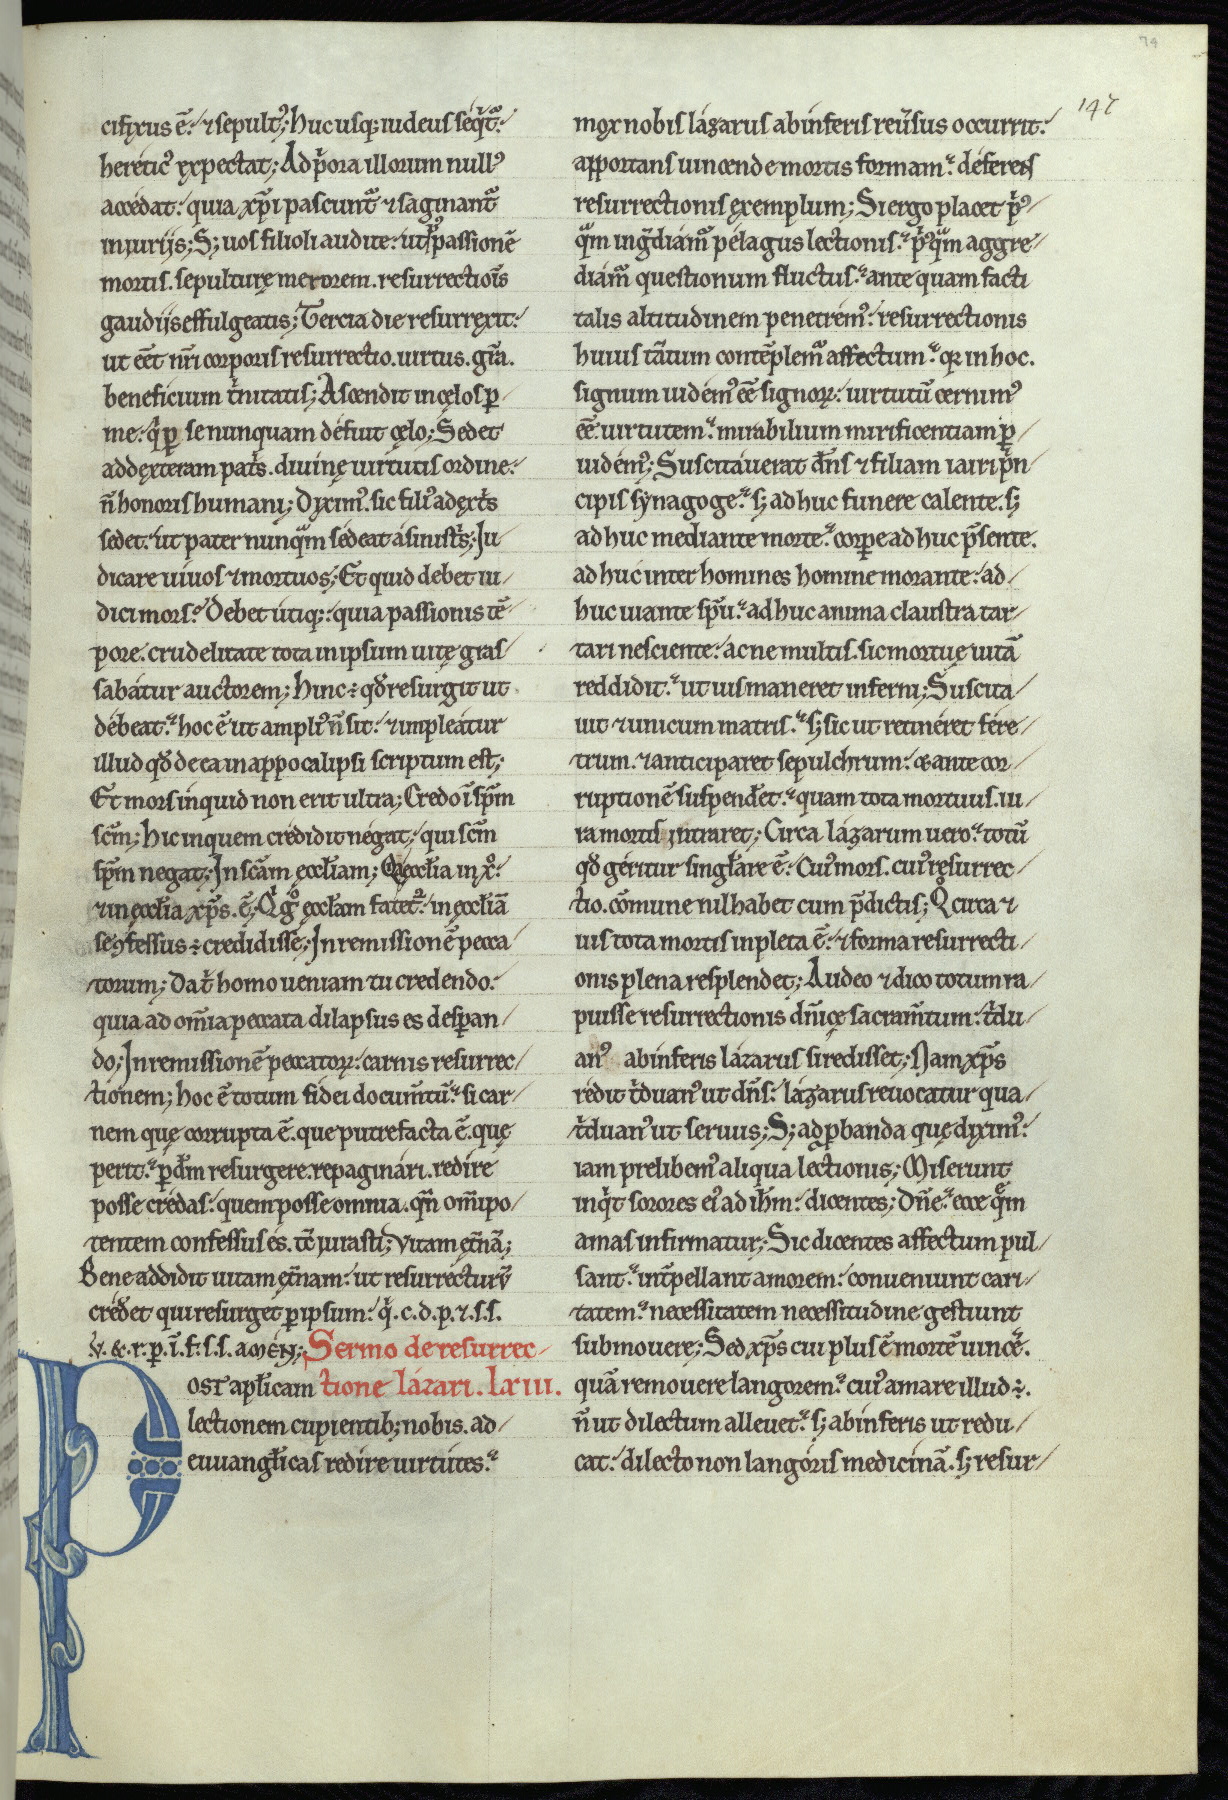 74
147
cifixus ē. ⁊ sepultꝰ; huc usq; iudeus seq̇tᷓ.
hereticꝰ expectat; Ad p̄ora illorum nullꝰ
accedat. quia xp̄i pascuntᷓ ⁊ saginantᷓ
iniurijs; S; uos filioli audite. ut p̾ passionē
mortis. sepulturę merorem. resurrectiois̄
gaudijs effulgeatis; Tercia die resurrexit.
ut eēt nr̄i corporis resurrectio. uirtus. gr̄a.
beneficium t̾nitatis; Ascendit in cęlos ꝑ
me. q̇ ꝑ se nunquam defuit cęlo; Sedet
ad dexteram pat̾s. diuinę uirtutis ordine.
n̄ honoris humani; Diximꝰ. sic filiꝰ ad ext̾s
sedet. ut pater nunqᷓm sedeat a sinist̾s; Iu
dicare uiuos ⁊ mortuos; Et quid debet iu
dici mors? Debet utiq;. quia passionis tē
pore. crudelitate tota in ipsum uitę gras
sabatur auctorem; Hinc ÷ qđ resurgit ut
debeat. hoc ē ut ampliꝰ n̄ sit. ⁊ impleatur
illud qđ de ea in appocalipsi scriptum est;
Et mors inquid non erit ultra; Credo ī sp̄m
sc̄m; Hic inquem credidit negat. qui sc̄m
sp̄m negat; In sc̄am ęccłiam; Q̇ ęccłia in xͦ.
⁊ in ęccłia xp̄s. ē; Q̇ gͦ ęccłam fatet᷑. in ęccłiā
se ꝯfessus ÷ credidisse; In remissionē pecca
torum; Dat̾ homo ueniam tu credendo.
quia ad om̄ia peccata dilapsus es desperan
do; In remissionē peccatoꝝ. carnis resurrec
tionem; Hoc ē totum fidei docum̄tū. si car
nem quę corrupta ē. que putrefacta ē. quę
perit. ꝑđm resurgere. repaginari. redire
posse credas. quem posse omnia. qn̄ om̄ipo
tentem confessus es. tc̄ iurasti; Vitam ęt̄nā;
Bene addidit uitam ęt̄nam. ut resurrecturū
cređet qui resurget ꝑ ipsum. q̇. c. d. p. ⁊. s. s.
v. &. r. ꝑ. ī. f. s. s. amen; Sermo de resurrec
OST apłicam tione lazari. lxiii.
lectionem cupientib; nobis. ad
euuangłicas redire uirtutes.
mox nobis lazarus ab inferis reūsus occurrit.
apportans uincende mortis formam. deferens
resurrectionis ęxemplum; Si ergo placet p̾ꝰ
qᷓm ing̾diamᷓ pelagus lectionis. p̾ꝰqᷓm aggre
diamᷓ questionum fluctus. ante quam facti
talis altitudinem penetremꝰ. resurrectionis
huius tātum contēplemᷓ affectum. qr in hoc.
signum uidemꝰ eē signoꝝ. uirtutū cernimꝰ
eē uirtutem. mirabilium mirificentiam ꝑ
uidemꝰ; Suscitauerat dn̄s ⁊ filiam iairi p̾n
cipis synagoge. s; ad huc funere calente. s;
ad huc mediante morte. corꝑe ad huc p̄sente.
ad huc inter homines homine morante. ad
huc uiante sp̄u. ad huc anima claustra tar
tari nesciente. ac ne multis. sic mortuę uitā
reddidit. ut uis maneret inferni; Suscita
uit ⁊ unicum matris. s; sic ut retineret fere
trum. ⁊ anticiparet sepulchrum. & ante cor
ruptionē suspenđet. quam tota mortuus. iu
ra mortis intraret; Circa lazarum uero. totū
qđ geritur singłare ē. Cuiꝰ mors. cuiꝰ resurrec
tio. cōmune nil habet cum p̄dictis; Qͦ circa ⁊
uis tota mortis inpleta ē. ⁊ forma resurrecti
onis plena resplendet; Audeo ⁊ dico totum ra
puisse resurrectionis dn̄icę sacram̄tum. t̾du
anꝰ ab inferis lazarus si redisset; Nam xp̄s
redit t̾duanꝰ ut dn̄s. lazarus reuocatur qua
t̾duanꝰ ut seruus; S; ad ꝓbanda quę diximꝰ.
iam prelibemꝰ aliqua lectionis; Miserunt
inq̇t sorores eiꝰ ad ih̄m. dicentes; Dn̄e. ecce qᷓm
amas infirmatur; Sic dicentes affectum pul
sant. int̄pellant amorem. conueniunt cari
tatem. necessitatem necessitudine gestiunt
submouere; Sed xp̄s cui plus ē mortē uince̾.
quā remouere langorem. cuiꝰ amare illud ÷.
n̄ ut dilectum alleuet. s; ab inferis ut redu
cat. dilecto non langoris medicinā. s; resur